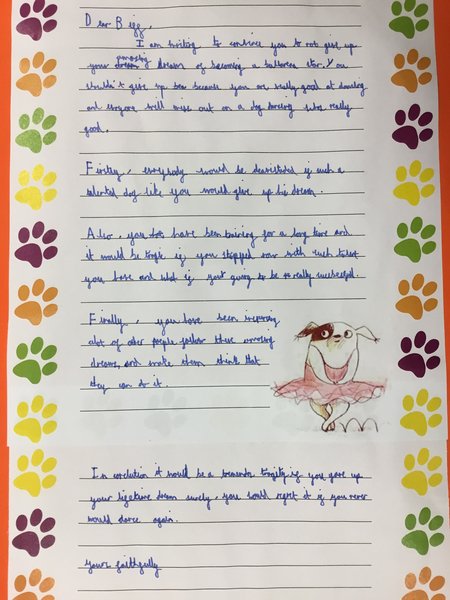 Dear Biff,
I am writing to convince you to not give up
your amazing dream of becoming a ballerina star. You
shouldn't give up now because you are really good at dancing
and everyone will miss out on a dog dancing who's really
good.
Firstly, everybody would be devastated if such a
talented dog like you would give up his dream.
Also, you have been training for a long time and
it would be tragic if you stopped now with such talent
you have and what if your going to be so really successful.
Finally, you have been inspiring
alot of other people follow there amazing
dreams, and make them think that
they can do it.
In conclution it would be a tremendous tragity if you gave up
your lifetime dream surely, you would regret it if you never
would dance again.
yours faithfully